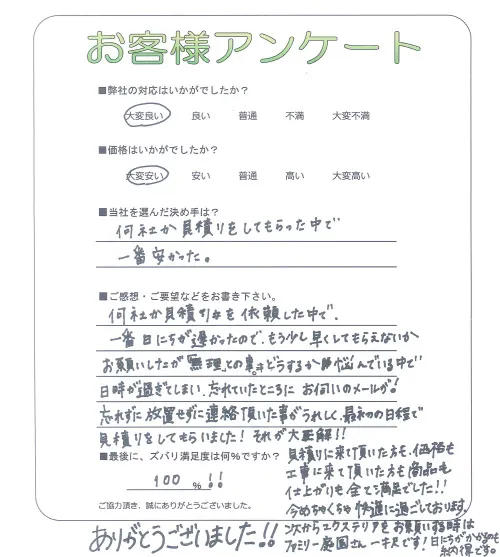 お客様アンケート
■弊社の対応はいかがでしたか？
大変良い 良い 普通 不満 大変不満
■価格はいかがでしたか？
大変安い 安い 普通 高い 大変高い
■当社を選んだ決め手は？
何社か見積りをしてもらった中で
一番安かった。
■ご感想・ご要望などをお書き下さい。
何社か見積りを依頼した中で、
一番日にちが遅かったので、もう少し早くしてもらえないか
お願いしたが無理との事。どうするか悩んでいる中で
日時が過ぎてしまい、忘れていたところに お伺いのメールが！
忘れずに放置せずに連絡頂いた事がうれしく、最初の日程で
見積りをしてもらいました！それが大正解！！
■最後に、ズバリ満足度は何%ですか？
100 %！！
見積りに来て頂いた方も、価格も
工事に来て頂いた方も商品も
仕上がりも全て満足でした！！
今めちゃくちゃ快適に過ごしております。
次からエクステリアをお願いする時は
ファミリー庭園さん一キスです！日にちがかかっても
ご協力頂き、誠にありがとうございました。
ありがとうございました！！